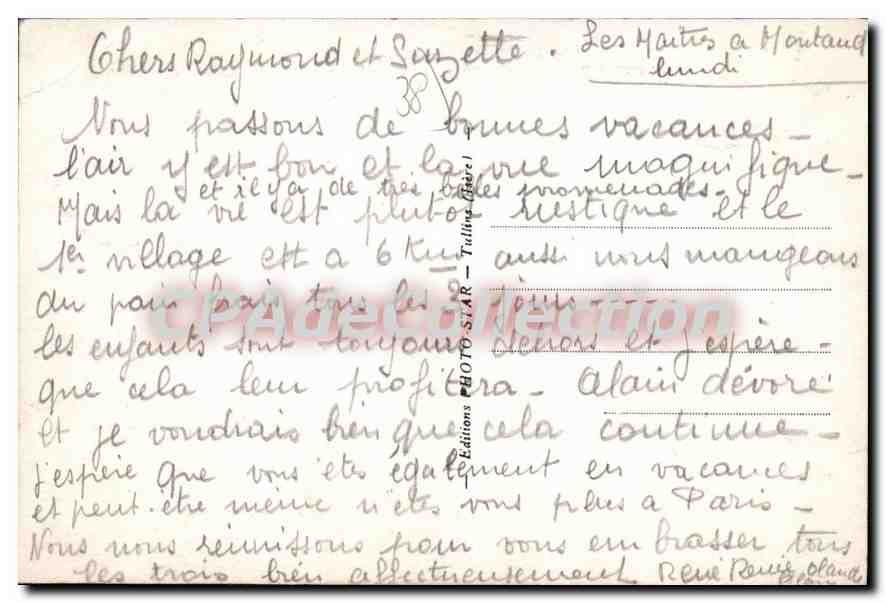 Les Maitres a Montaud
lundi
Chers Raymond et Suzette.
38
Nous passons de bonnes vacances -
l'air y est bon et la vue magnifique -
et il y a de très belles promenades -
Mais la vie est plutot rustique et le
1er village est a 6 Km aussi nous mangeons
du pain frais tous les 2 jours - - - -
les enfants sont toujours dehors et j'espère -
que cela leur profitera - Alain dévore
et je voudrais bien que cela continue -
j'espère que vous êtes également en vacances
et peut-être même n'êtes vous plus a Paris -
Nous nous réunissons pour vous embrasser tous
les trois bien affectueusement René Renée
Editions PHOTO-STAR - Tullins (Isère)
CPAdeCollection